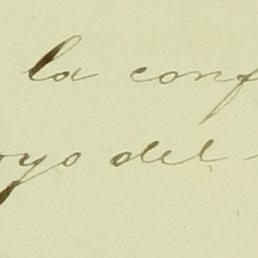 la conf
oyo del